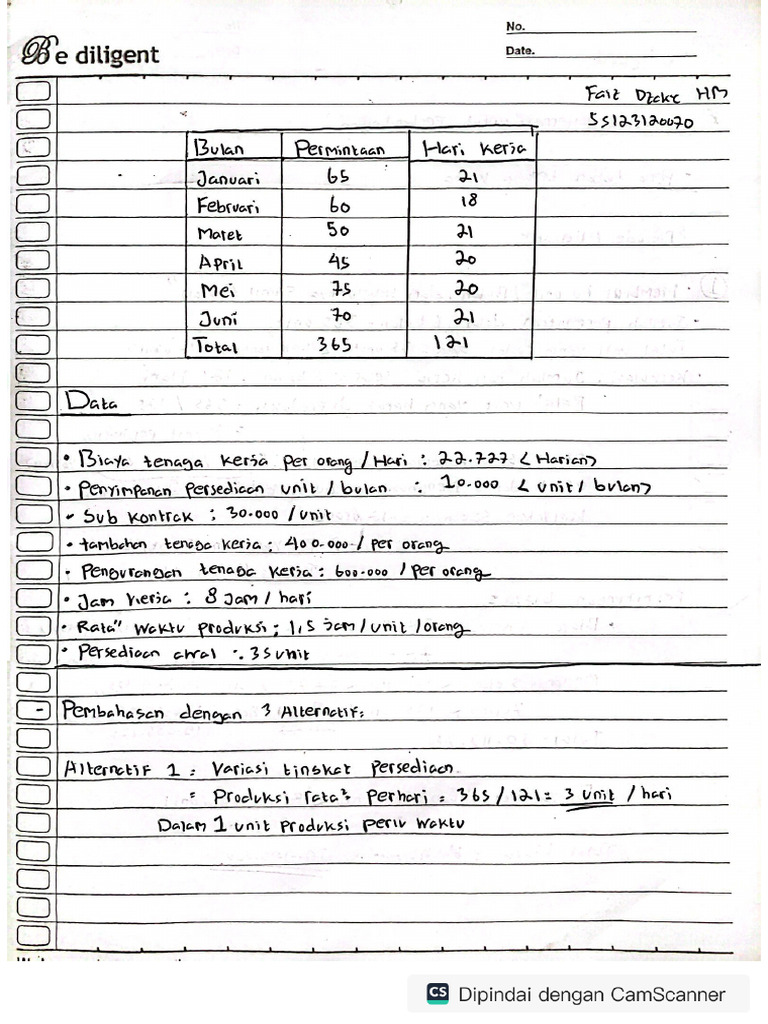 No.
Date.
Be diligent
Faiz Dzckr HM
55123120070
Bulan Permintaan Hari Kerja
Januari 65 21
Februari 60 18
Maret 50 21
April 45 20
Mei 75 20
Juni 70 21
Total 365 121
Data
• Biaya tenaga kerja per orang / Hari : 22.727 < Harian>
• Penyimpanan Persediaan unit / bulan : 10.000 < unit / bulan>
• Sub kontrak : 30.000 / unit
• tambahan tenaga kerja : 400.000 / per orang
• Pengurangan tenaga kerja : 600.000 / per orang
• Jam kerja : 8 Jam / hari
• Rata" waktu produksi ; 1,5 jam / unit / orang
• Persediaan awal : 35 unit
- Pembahasan dengan 3 Alternatif:
Alternatif 1 = Variasi tingkat Persediaan
= Produksi rata² Perhari = 365 / 121 = 3 unit / hari
Dalam 1 unit Produksi perlu waktu
CS Dipindai dengan CamScanner